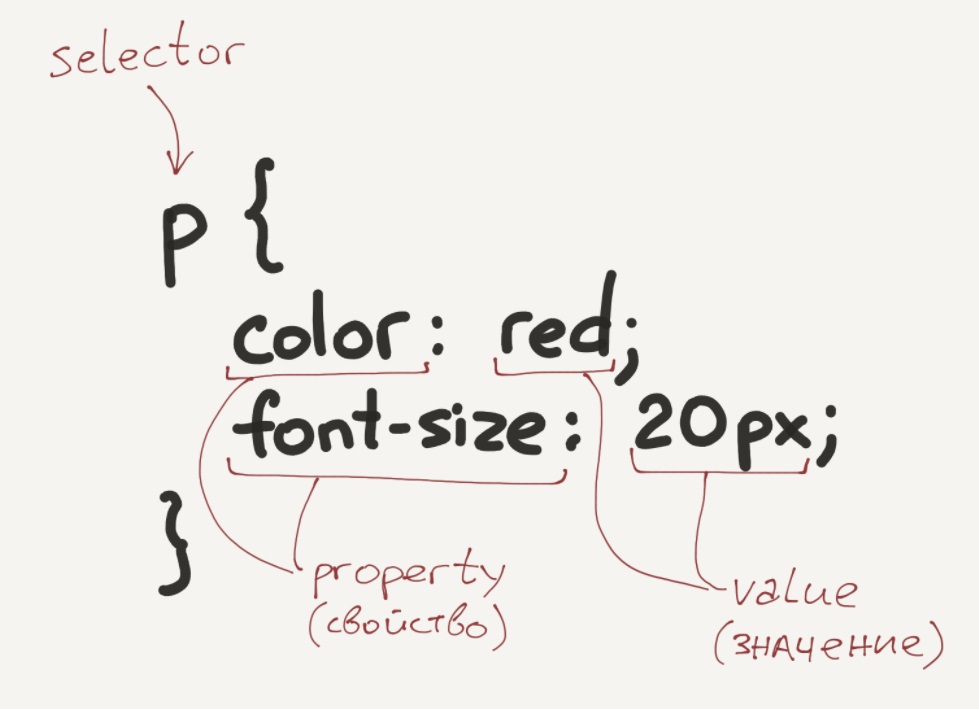 selector
p {
color: red;
font-size: 20px;
}
property
(свойство)
value
(значение)